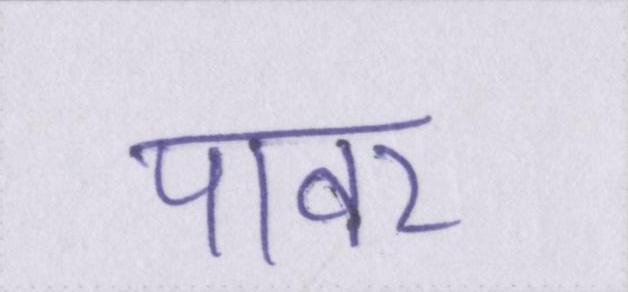 पावर